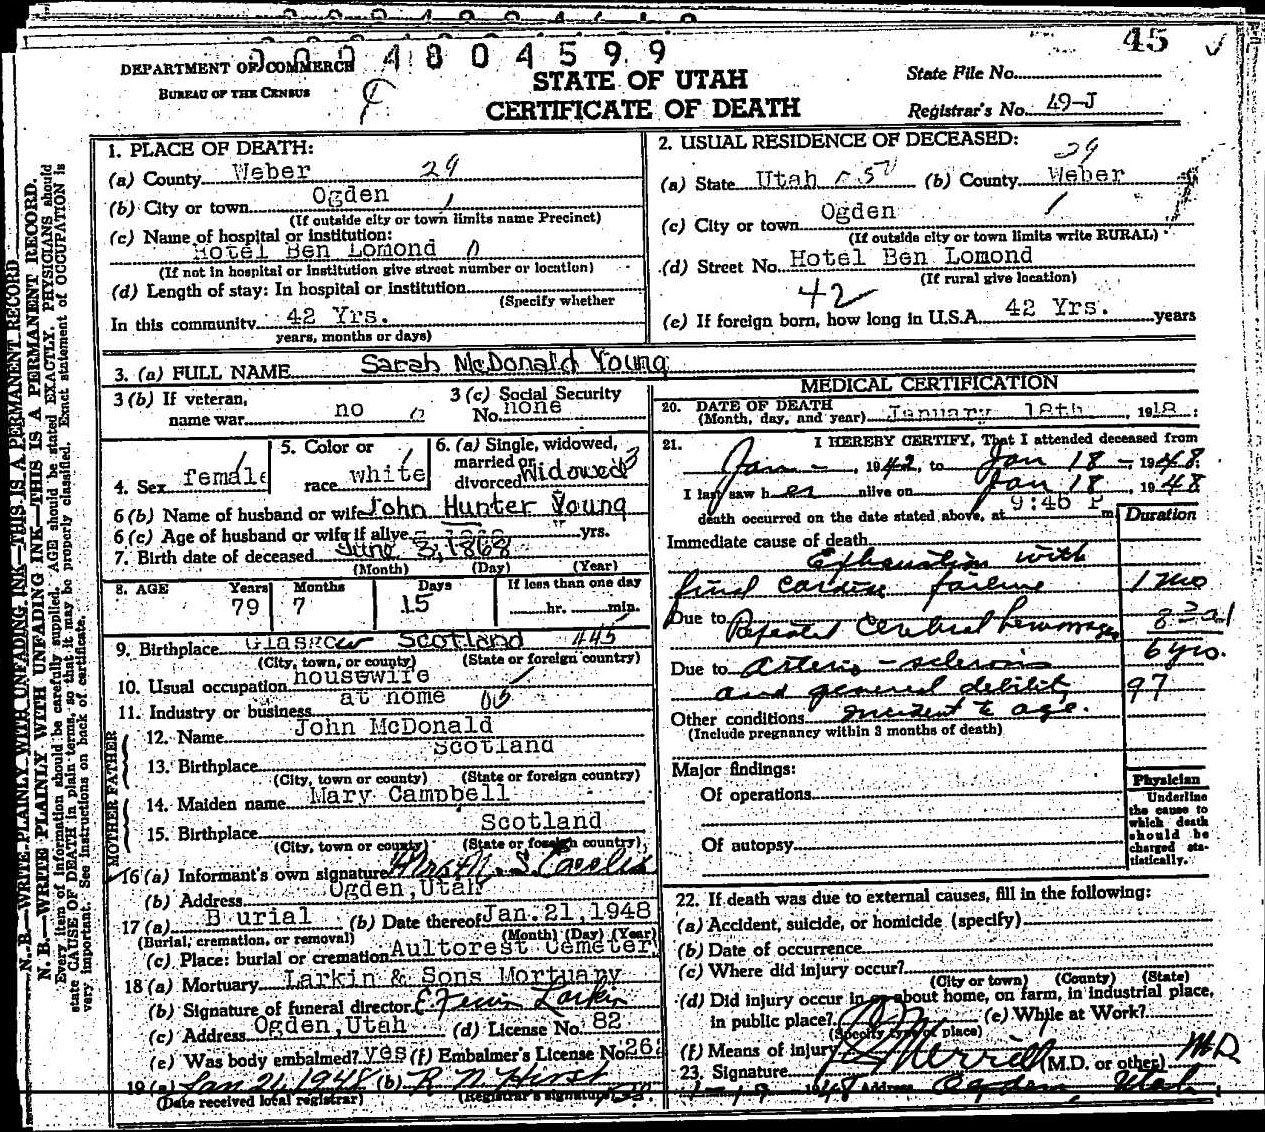 0004804599
45
DEPARTMENT OF COMMERCE
BUREAU OF THE CENSUS
STATE OF UTAH
CERTIFICATE OF DEATH
State File No.
Registrar's No. 49-J
N. B.—WRITE PLAINLY WITH UNFADING INK—THIS IS A PERMANENT RECORD.
N. B.—WRITE PLAINLY WITH UNFADING INK—THIS IS A PERMANENT RECORD.
Every item of information should be carefully supplied. AGE should be stated EXACTLY. PHYSICIANS should
state CAUSE OF DEATH in plain terms, so that it may be properly classified. Exact statement of OCCUPATION is
very important. See instructions on back of certificate.
1. PLACE OF DEATH:
(a) County Weber 29
(b) City or town Ogden
(If outside city or town limits name Precinct)
(c) Name of hospital or institution:
Hotel Ben Lomond 0
(If not in hospital or institution give street number or location)
(d) Length of stay: In hospital or institution
(Specify whether
In this community 42 Yrs.
years, months or days)
2. USUAL RESIDENCE OF DECEASED:
29
(a) State Utah (b) County Weber
(c) City or town Ogden
(If outside city or town limits write RURAL)
(d) Street No. Hotel Ben Lomond
(If rural give location)
42
(e) If foreign born, how long in U.S.A. 42 Yrs. years
3. (a) FULL NAME Sarah McDonald Young
3 (b) If veteran, name war no 0
3 (c) Social Security No. none
4. Sex female
5. Color or race white
6. (a) Single, widowed, married or divorced Widowed 3
6 (b) Name of husband or wife John Hunter Young
6 (c) Age of husband or wife if alive yrs.
7. Birth date of deceased June 3, 1868
(Month) (Day) (Year)
8. AGE Years Months Days If less than one day
79 7 15 hr. min.
9. Birthplace Glasgow Scotland 445
(City, town, or county) (State or foreign country)
10. Usual occupation housewife
11. Industry or business at home 05
FATHER
12. Name John McDonald
13. Birthplace Scotland
(City, town or county) (State or foreign country)
MOTHER
14. Maiden name Mary Campbell
15. Birthplace Scotland
(City, town or county) (State or foreign country)
16 (a) Informant's own signature
(b) Address Ogden, Utah
17 (a) Burial (b) Date thereof Jan. 21, 1948
(Burial, cremation, or removal) (Month) (Day) (Year)
(c) Place: burial or cremation Aultorest Cemeter
18 (a) Mortuary Larkin & Sons Mortuary
(b) Signature of funeral director Larkin
(c) Address Ogden, Utah (d) License No. 82
(e) Was body embalmed? yes (f) Embalmer's License No. 26
19 (a) Jan 21 1948 (b) R N Hirst
(Date received local registrar) (Registrar's signature)
MEDICAL CERTIFICATION
20. DATE OF DEATH
(Month, day, and year) January 18th, 1918
21. I HEREBY CERTIFY, That I attended deceased from
Jan -, 1942, to Jan 18 -, 1948.
I last saw her alive on Jan 18, 1948
death occurred on the date stated above, at 9:45 P m
Duration
Immediate cause of death
Exhaustion with
final cardiac failure 1 mo
Due to Repeated Cerebral hemorrages
Due to arterio-sclerosis 6 yrs.
and general debility 97
Other conditions incident to age.
(Include pregnancy within 3 months of death)
Major findings:
Of operations
Of autopsy
Physician
Underline
the cause to
which death
should be
charged sta-
tistically.
22. If death was due to external causes, fill in the following:
(a) Accident, suicide, or homicide (specify)
(b) Date of occurrence
(c) Where did injury occur?
(City or town) (County) (State)
(d) Did injury occur in or about home, on farm, in industrial place,
in public place? (e) While at Work?
(Specify type of place)
(f) Means of injury
23. Signature Merrill (M.D. or other) M.D.
1-19 1948 Address Ogden, Utah.